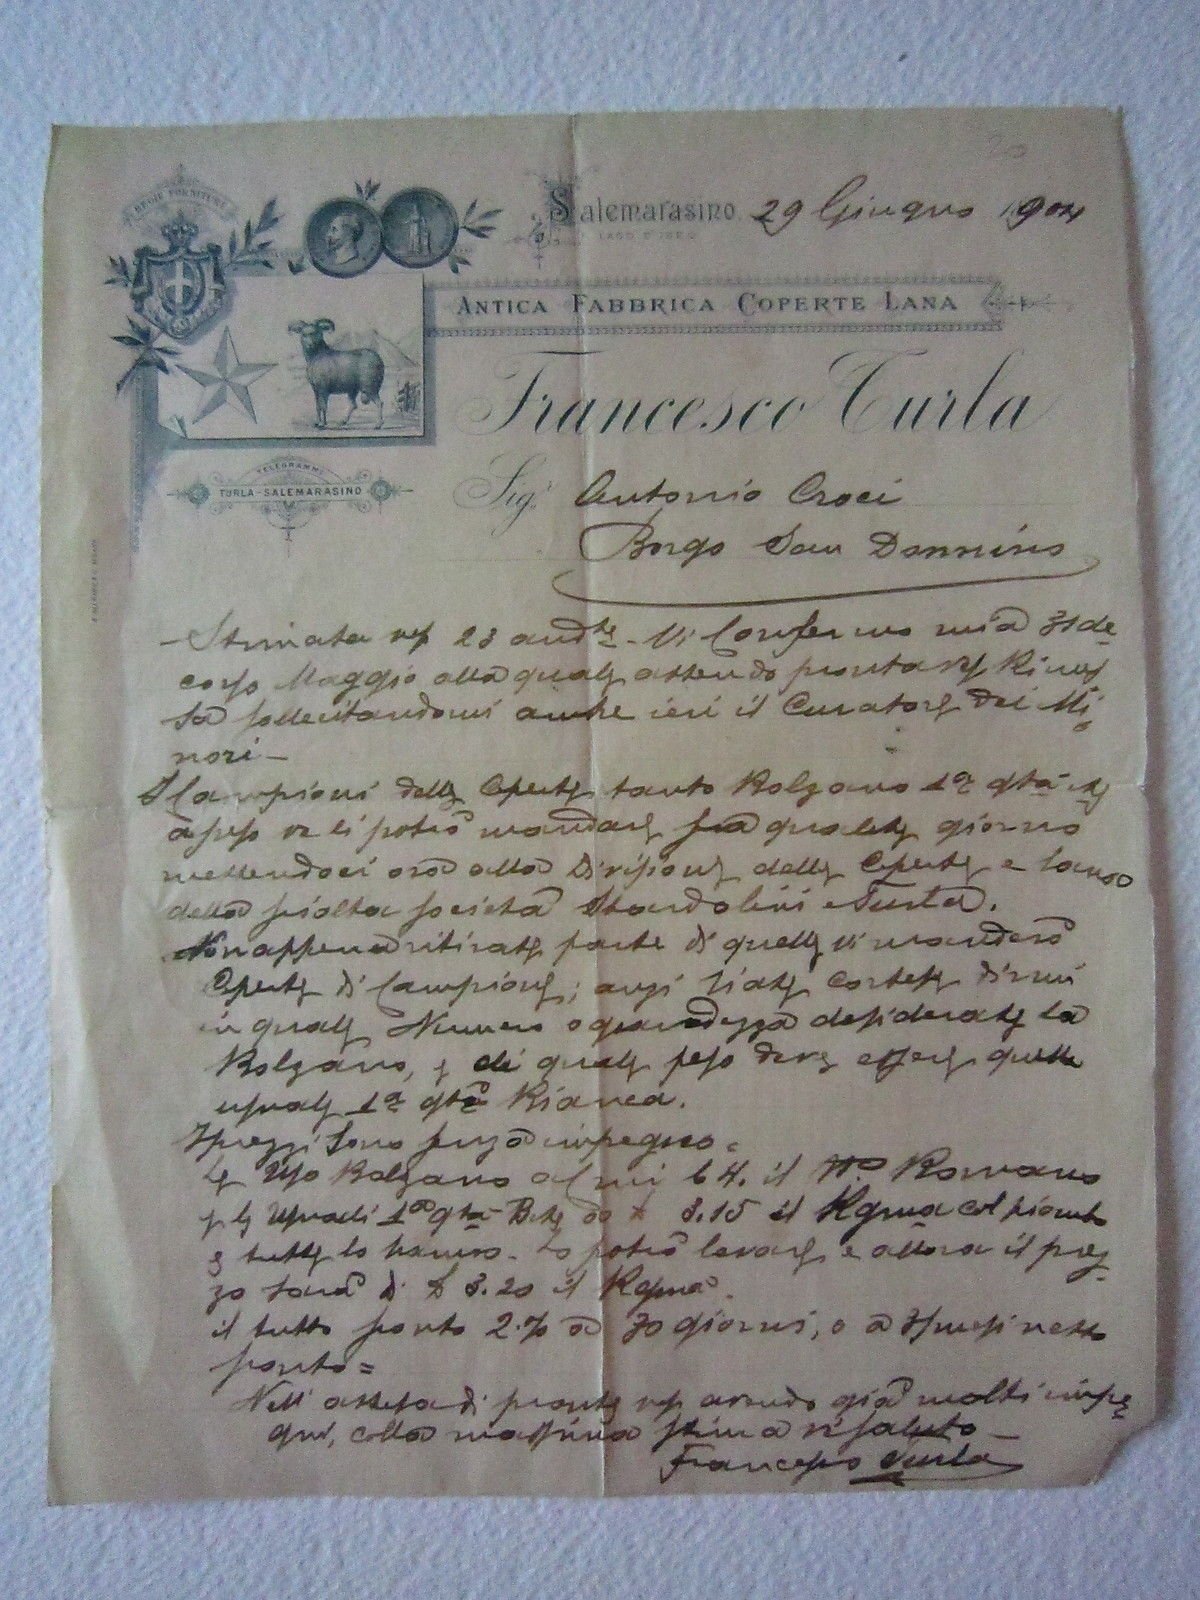 REGIE FORNITURE
Salemarasino, 29 Giugno 1904
LAGO D'ISEO
ANTICA FABBRICA COPERTE LANA
Francesco Turla
TELEGRAMMI
TURLA-SALEMARASINO
Sig. Antonio Croci
Borgo San Donnino
Stimata 23 andte. Vi Confermo mia 31 de-
corso Maggio alla quale attendo pronta Rimes
sa sollecitandomi anche ieri il Curatore dei Mi
nori -
I Campioni delle Coperte tanto Bolzano 1a qtà
ve li potrò mandare fra qualche giorno
mettendoci ora alla Divisione delle Coperte e Lana
della sciolta società Turla.
Non appena ritirate parte di quelle vi manderò
Coperte di Campione; anzi siate cortese dirmi
in quale Numero o grandezza desiderate la
Bolzano, e di quale peso deve essere quella
uso 1a qtà Bianca.
I prezzi sono senza impegno =
Le Uso Bolzano 64. il Romano
p le 1a qtà da £ 3.15 il Kgma col piombo
e tutte lo hanno. Lo potrò levare e allora il prez
zo sarà di £ 3.20 il Kgma.
il tutto sconto 2% a 30 giorni, o a 3 mesi netto
sconto =
Nell'attesa di pronta avendo già molti impe
gni, colla massima stima vi saluto -
Francesco Turla